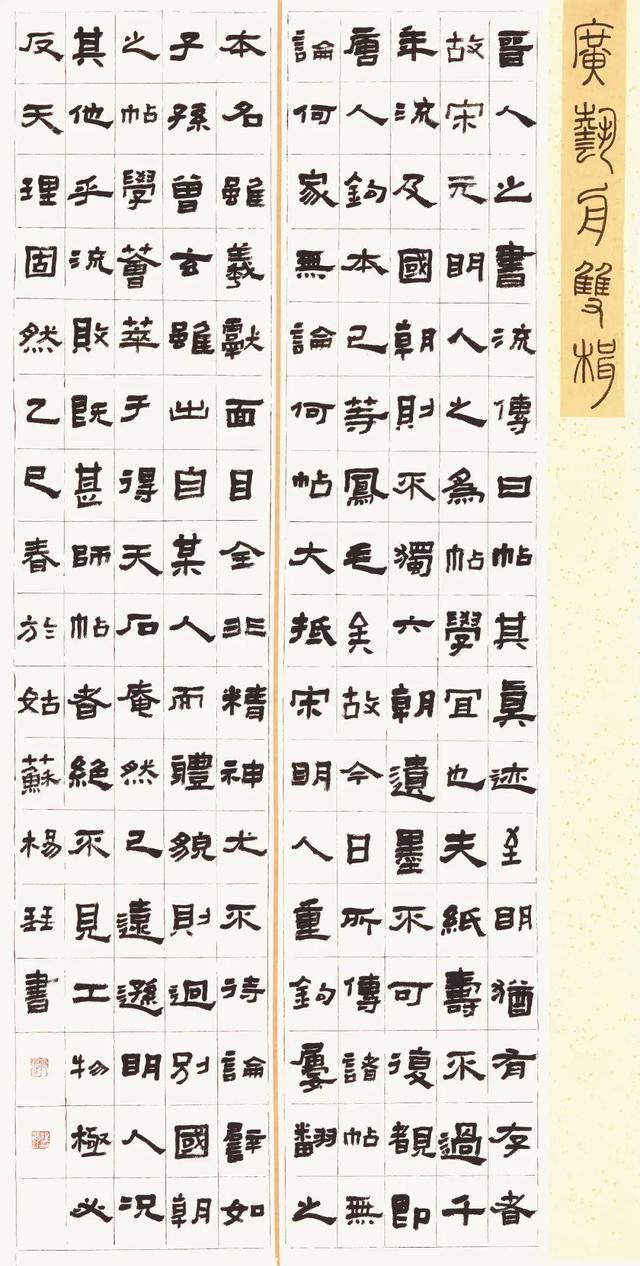 廣藝舟雙楫
晉人之書流傳曰帖其眞迹至明猶有存者
故宋元明人之為帖學宜也夫紙壽不過千
年流及國朝則不獨六朝遺墨不可復覩即
唐人鈎本已等鳳毛矣故今日所傳諸帖無
論何家無論何帖大抵宋明人重鈎屢翻之
本名雖羲獻面目全非精神尤不待論譬如
子孫曾玄雖出自某人而體貌則迥別國朝
之帖學薈萃于得天石庵然已遠遜明人況
其他乎流敗既甚師帖者絕不見工物極必
反天理固然乙巳春於姑蘇楊書